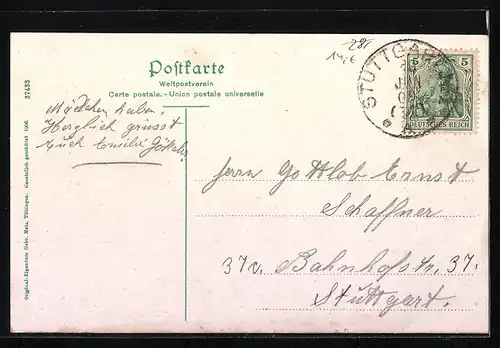 28
Postkarte
Weltpostverein
Carte postale. - Union postale universelle
37433
Original-Eigentum Gebr. Metz, Tübingen. Gesetzlich geschützt 1906.
Herzlich grüsst
Euch Emilie
STUTTGART
5 5
DEUTSCHES REICH
Herrn Gottlob Ernst
Schaffner
37v. Bahnhofstr. 37.
Stuttgart.